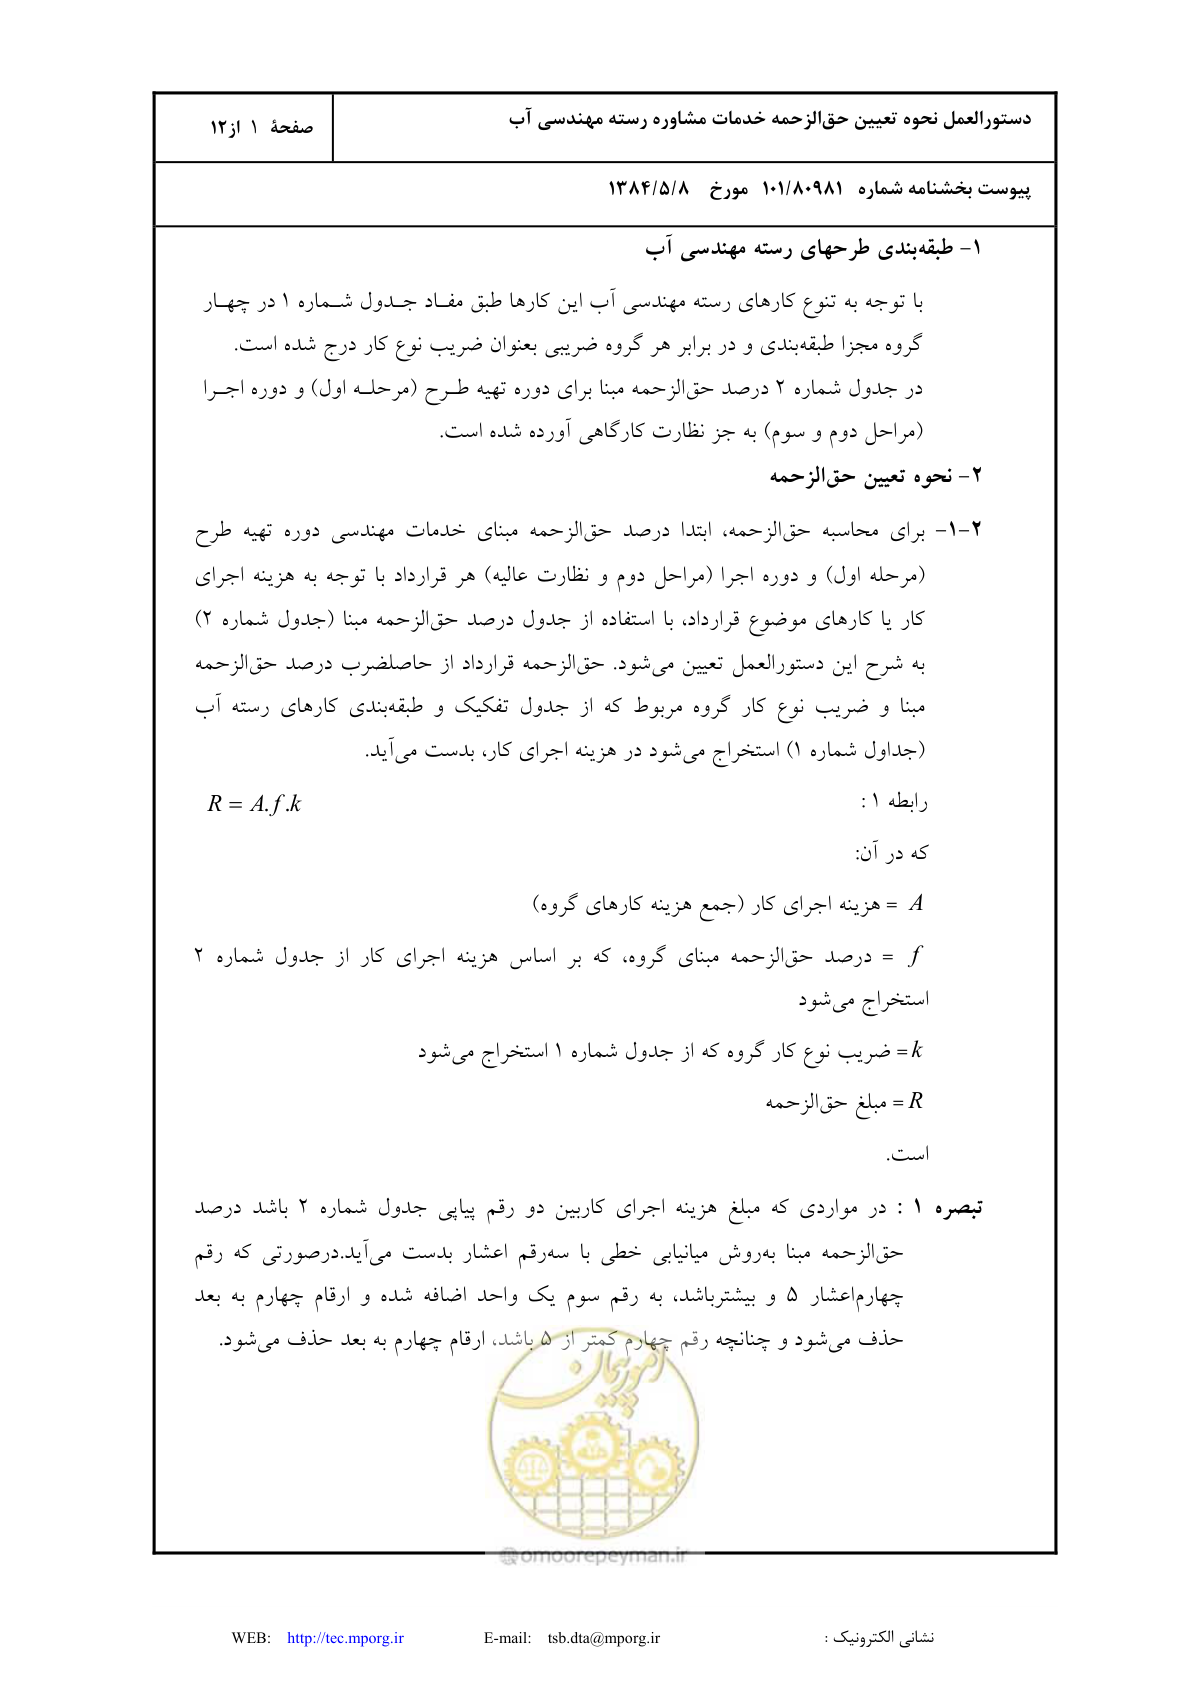 دستورالعمل نحوه تعیین حق‌الزحمه خدمات مشاوره رسته مهندسی آب
صفحهٔ ۱ از۱۲
پیوست بخشنامه شماره ۱۰۱/۸۰۹۸۱ مورخ ۱۳۸۴/۵/۸
۱- طبقه‌بندی طرحهای رسته مهندسی آب
با توجه به تنوع کارهای رسته مهندسی آب این کارها طبق مفـاد جـدول شـماره ۱ در چهـار
گروه مجزا طبقه‌بندی و در برابر هر گروه ضریبی بعنوان ضریب نوع کار درج شده است.
در جدول شماره ۲ درصد حق‌الزحمه مبنا برای دوره تهیه طـرح (مرحلـه اول) و دوره اجـرا
(مراحل دوم و سوم) به جز نظارت کارگاهی آورده شده است.
۲- نحوه تعیین حق‌الزحمه
۲-۱- برای محاسبه حق‌الزحمه، ابتدا درصد حق‌الزحمه مبنای خدمات مهندسی دوره تهیه طرح
(مرحله اول) و دوره اجرا (مراحل دوم و نظارت عالیه) هر قرارداد با توجه به هزینه اجرای
کار یا کارهای موضوع قرارداد، با استفاده از جدول درصد حق‌الزحمه مبنا (جدول شماره ۲)
به شرح این دستورالعمل تعیین می‌شود. حق‌الزحمه قرارداد از حاصلضرب درصد حق‌الزحمه
مبنا و ضریب نوع کار گروه مربوط که از جدول تفکیک و طبقه‌بندی کارهای رسته آب
(جداول شماره ۱) استخراج می‌شود در هزینه اجرای کار، بدست می‌آید.
رابطه ۱ : R = A.f.k
که در آن:
A = هزینه اجرای کار (جمع هزینه کارهای گروه)
f = درصد حق‌الزحمه مبنای گروه، که بر اساس هزینه اجرای کار از جدول شماره ۲
استخراج می‌شود
k = ضریب نوع کار گروه که از جدول شماره ۱ استخراج می‌شود
R = مبلغ حق‌الزحمه
است.
تبصره ۱ : در مواردی که مبلغ هزینه اجرای کاربین دو رقم پیاپی جدول شماره ۲ باشد درصد
حق‌الزحمه مبنا به‌روش میانیابی خطی با سه‌رقم اعشار بدست می‌آید.درصورتی که رقم
چهارم‌اعشار ۵ و بیشترباشد، به رقم سوم یک واحد اضافه شده و ارقام چهارم به بعد
حذف می‌شود و چنانچه رقم چهارم کمتر از ۵ باشد، ارقام چهارم به بعد حذف می‌شود.
امور پیمان
@omoorepeyman.ir
نشانی الکترونیک : E-mail: tsb.dta@mporg.ir WEB: http://tec.mporg.ir